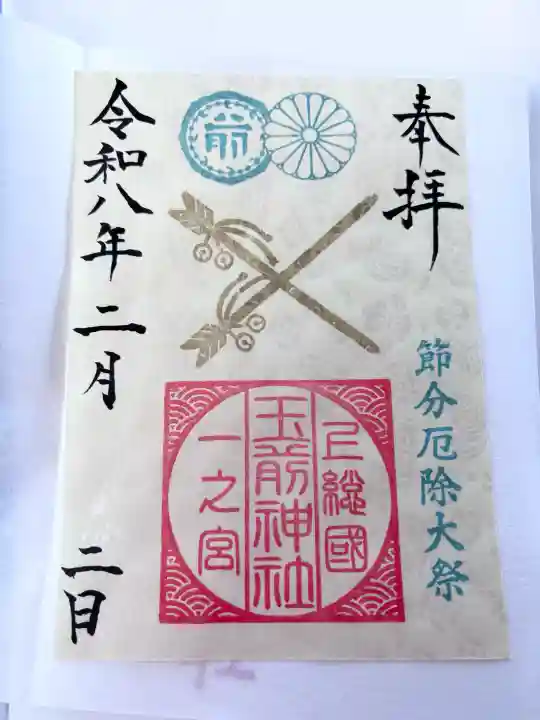 奉拝
節分厄除大祭
前
上総國
玉前神社
一之宮
令和八年二月二日